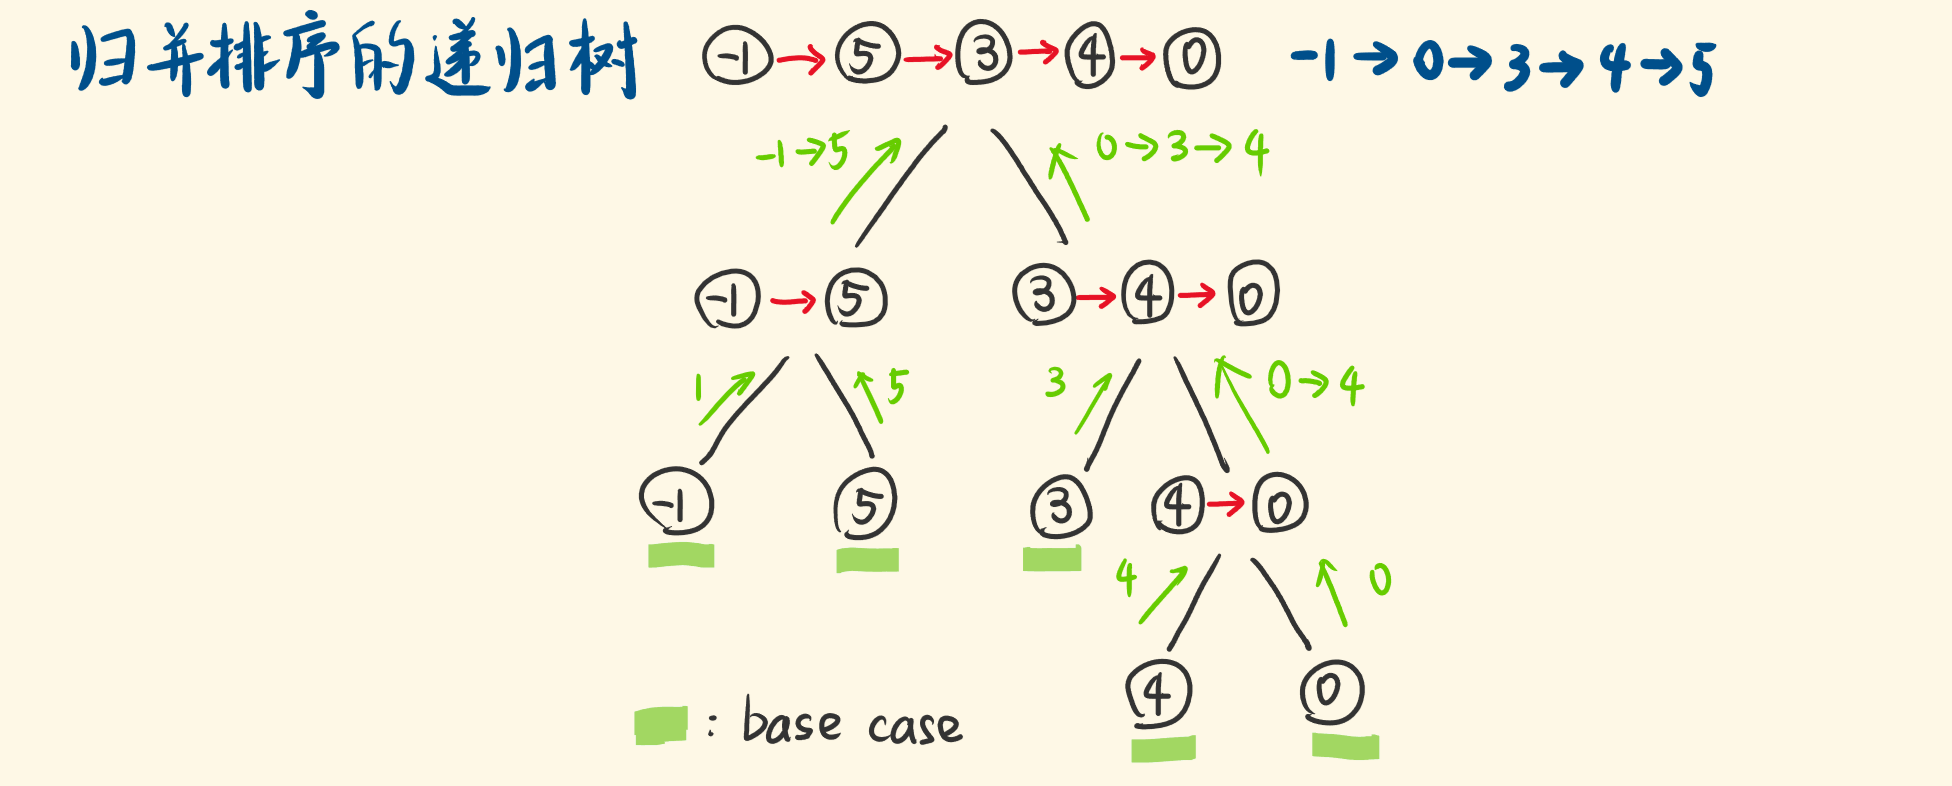 归并排序的递归树
-1→5→3→4→0
-1→0→3→4→5
-1→5
0→3→4
-1→5
3→4→0
1
5
3
0→4
-1
5
3
4→0
4
0
4
0
: base case